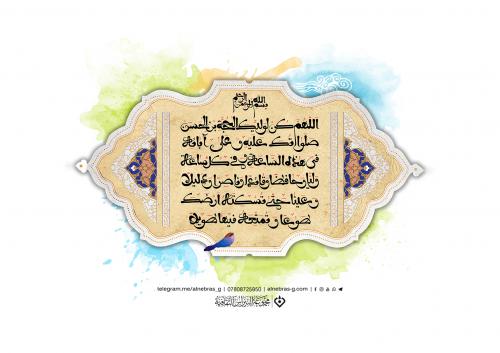 بسم الله الرحمن الرحيم
اللهم كن لوليك الحجة بن الحسن
صلواتك عليه وعلى آبائه
في هذه الساعة وفي كل ساعة
وليا وحافظا وقائدا وناصرا ودليلا
وعينا حتى تسكنه أرضك
طوعا وتمتعه فيها طويلا
telegram.me/alnebras_g | 07808725950 | alnebras-g.com |